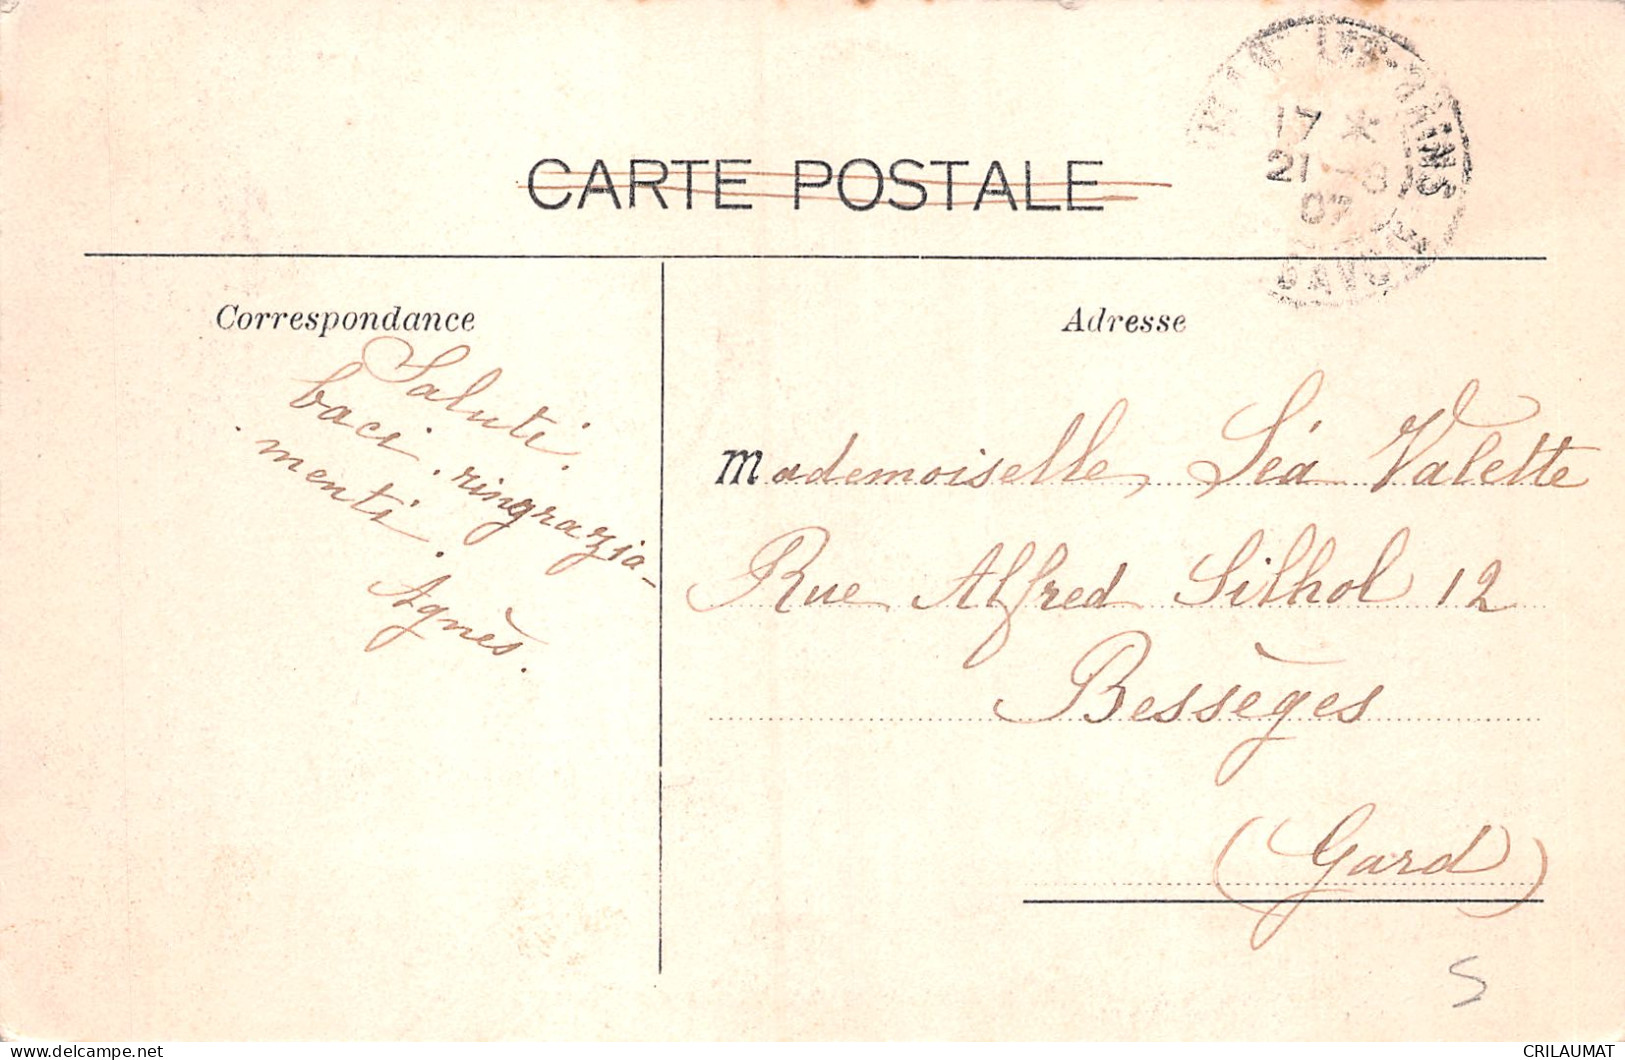 CARTE POSTALE
LES-BAINS
17 *
21 -8
07
SAVOIE
Correspondance
Saluti.
baci. ringrazia-
menti.
Agnès.
Adresse
Mademoiselle Léa Valette
Rue Alfred Silhol 12
Bessèges
(Gard)
5
CRILAUMAT